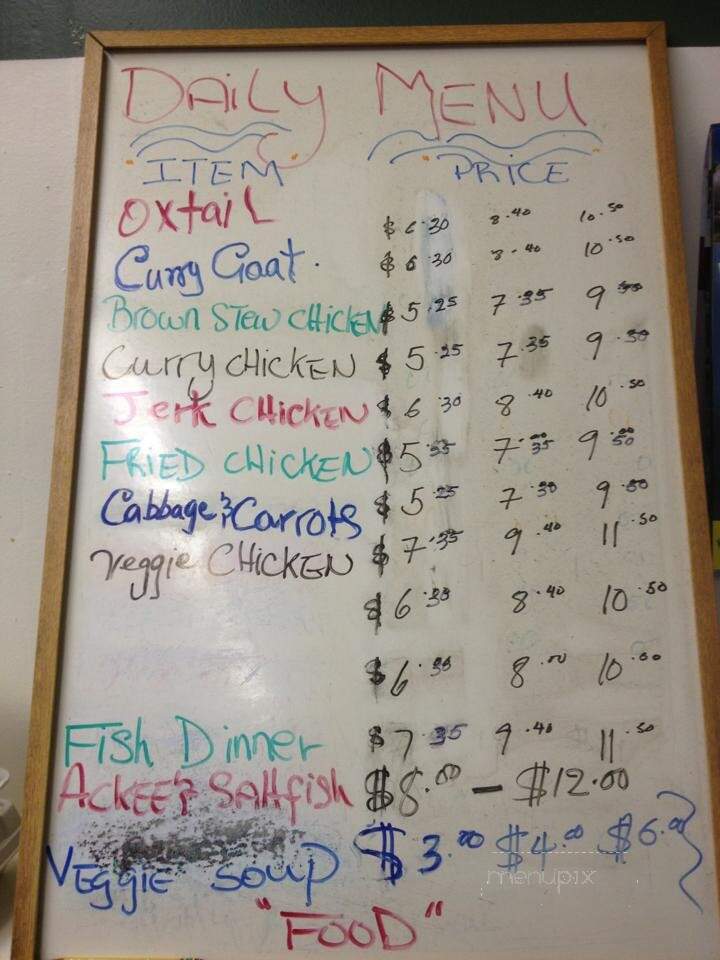 DAILY MENU
ITEM PRICE
Oxtail $6.30 8.40 10.50
Curry Goat. $6.30 8.40 10.50
Brown Stew CHICKEN $5.25 7.35 9
Curry CHICKEN $5.25 7.35 9.50
Jerk CHICKEN $6.30 8.40 10.50
FRIED CHICKEN $5 7 9
Cabbage & Carrots $5.25 7 9.50
Veggie CHICKEN $7.35 9.40 11.50
$6 8.40 10.50
$6 8.00 10.00
Fish Dinner $7.35 9.40 11.50
ACKEE & Saltfish $8.00 – $12.00
Veggie Soup $3.00 $4.00 $6.00
menupix
"FOOD"